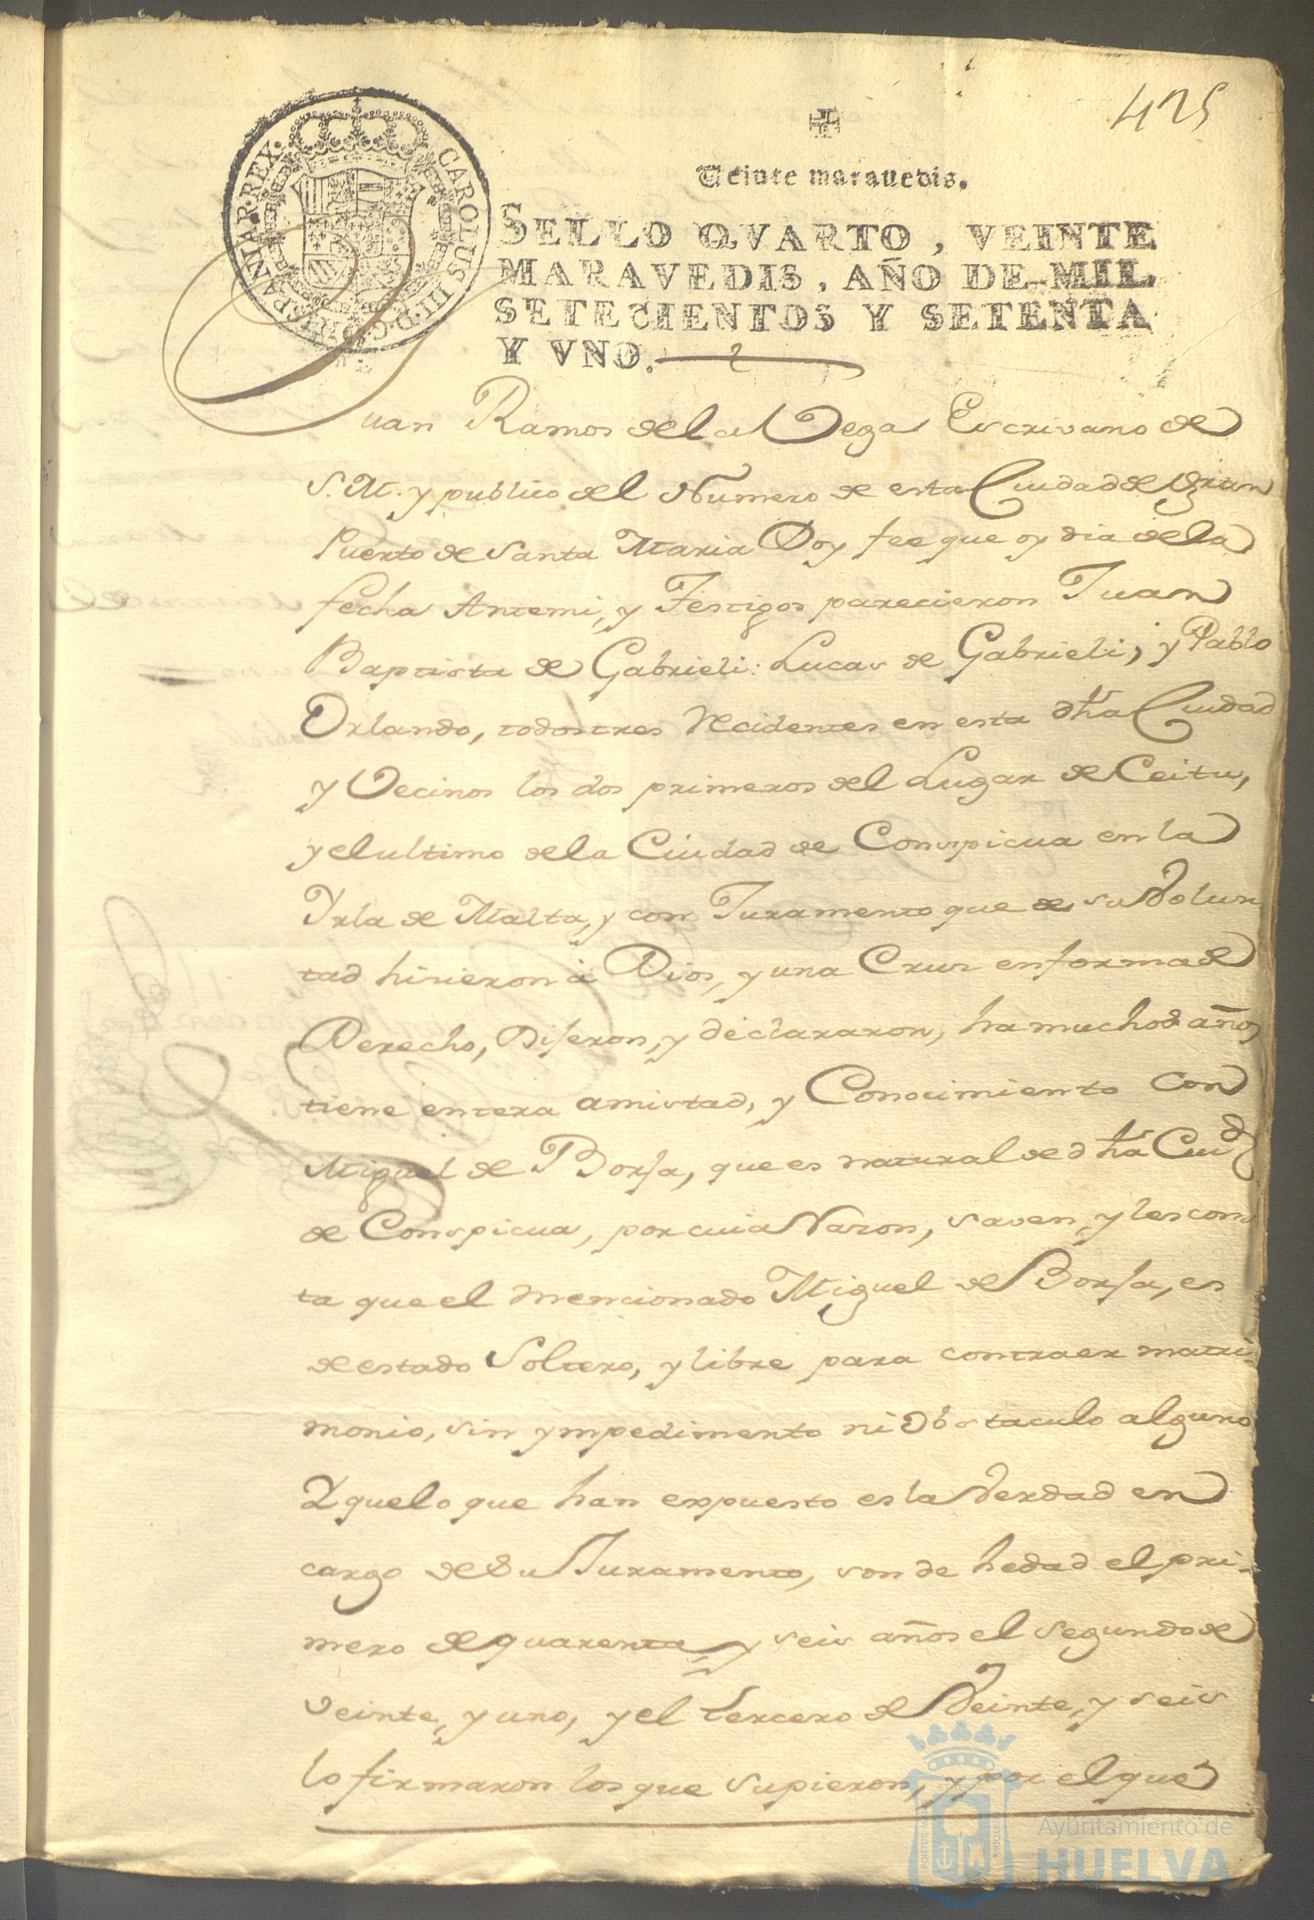 425
Veinte maravedis.
CAROLUS III D G HISPANIAR REX
SELLO QVARTO, VEINTE
MARAVEDIS, AÑO DE MIL
SETECIENTOS Y SETENTA
Y VNO.
Juan Ramos de la Vega Escrivano de
S. M. y publico del Numero de esta Ciudad de gran
Puerto de Santa Maria Doy fee que oy dia de la
fecha Antemi, y Testigos parecieron Juan
Baptista de Gabrieli: Lucas de Gabrieli, y Pablo
Orlando, todos tres Recidentes en esta dha Ciudad
y Vecinos los dos primeros del Lugar de Ceitu,
y el ultimo de la Ciudad de Conspicua en la
Ysla de Malta, y con Juramento que de su Volun
tad hisieron à Dios, y una Crus en forma de
Derecho, Diseron, y declararon, ha muchos años
tiene entera amistad, y Conocimiento con
Miguel de Borsa, que es natural de dha Ciud
de Conspicua, por cuia Rason, saven, y les cons
ta que el mencionado Miguel de Borsa, es
de estado Soltero, y libre para contraer matri
monio, sin ympedimento ni Obstaculo alguno
Y que lo que han expuesto es la Verdad en
cargo de su Juramento, son de hedad el pri-
mero de quarenta, y seis años el segundo de
veinte, y uno, y el tercero de Veinte, y seis
lo firmaron los que supieron, y por el que
Ayuntamiento de
HUELVA